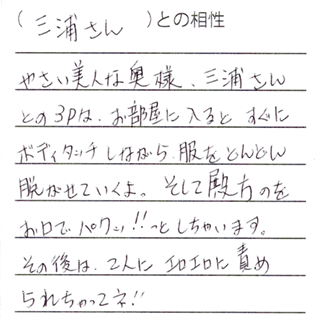 （三浦さん　）との相性
やさい美人な奥様、三浦さん
との3Pは、お部屋に入ると すぐに
ボディタッチしながら、服をどんどん
脱がせていくよ。そして殿方のを
お口でパクッ!!っとしちゃいます。
その後は、2人に エロエロに責め
られちゃってネ!!